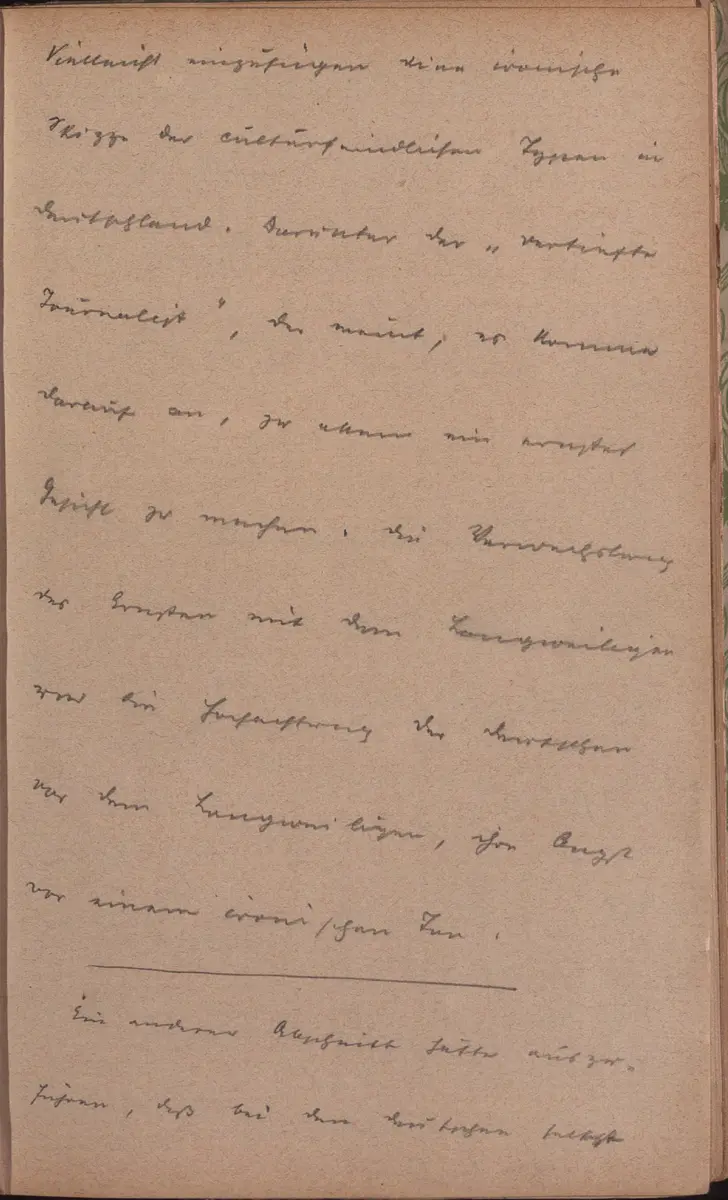 Vielleicht einzufügen eine ironische
Skizze der culturfeindlichen Typen in
Deutschland. Darunter der „vertiefte
Journalist“, der meint, es komme
darauf an, zu allem ein ernstes
Gesicht zu machen. Die Verwechslung
des Ernsten mit dem Langweiligen
und die Hochachtung der Deutschen
vor dem Langweiligen, ihre Angst
vor einem ironischen Ton.
Ein anderer Abschnitt hätte auszu-
führen, daß bei den Deutschen selbst